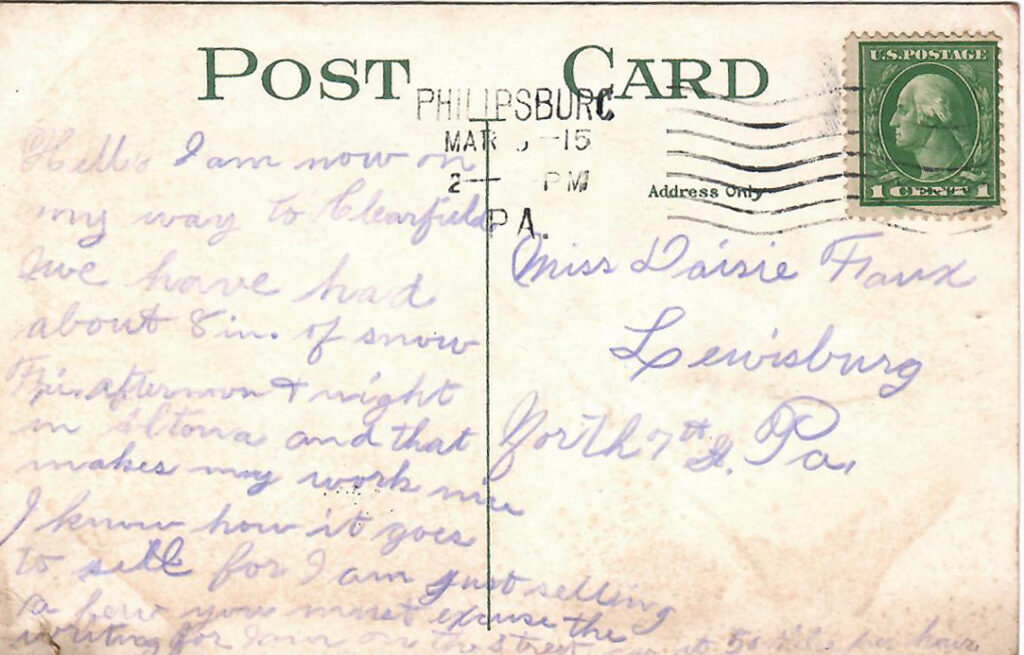 POST CARD
U.S. POSTAGE
1 CENT 1
PHILIPSBURG
MAR 5 -15
2— PM
PA.
Address Only
Hello I am now on
my way to Clearfield
we have had
about 8 in. of snow
Fri. afternoon & night
in Altona and that
makes my work nice
I know how it goes
to sell for I am just selling
a few you must excuse the
writing for I am on the street car at 50 miles per hour
Miss Daisie Faux
Lewisburg
North 7th St. Pa.